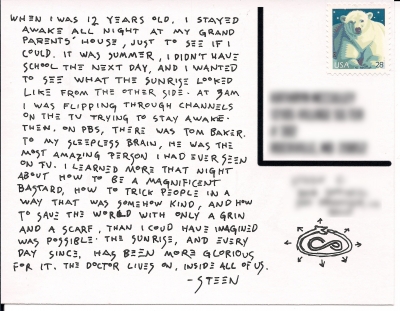 WHEN I WAS 12 YEARS OLD, I STAYED
AWAKE ALL NIGHT AT MY GRAND
PARENTS' HOUSE, JUST TO SEE IF I
COULD. IT WAS SUMMER, I DIDN'T HAVE
SCHOOL THE NEXT DAY, AND I WANTED
TO SEE WHAT THE SUNRISE LOOKED
LIKE FROM THE OTHER SIDE. AT 3AM
I WAS FLIPPING THROUGH CHANNELS
ON THE TV TRYING TO STAY AWAKE.
THEN, ON PBS, THERE WAS TOM BAKER.
TO MY SLEEPLESS BRAIN, HE WAS THE
MOST AMAZING PERSON I HAD EVER SEEN
ON TV. I LEARNED MORE THAT NIGHT
ABOUT HOW TO BE A MAGNIFICENT
BASTARD, HOW TO TRICK PEOPLE IN A
WAY THAT WAS SOMEHOW KIND, AND HOW
TO SAVE THE WORLD WITH ONLY A GRIN
AND A SCARF, THAN I COULD HAVE IMAGINED
WAS POSSIBLE. THE SUNRISE, AND EVERY
DAY SINCE, HAS BEEN MORE GLORIOUS
FOR IT. THE DOCTOR LIVES ON, INSIDE ALL OF US.
-STEEN
USA 28